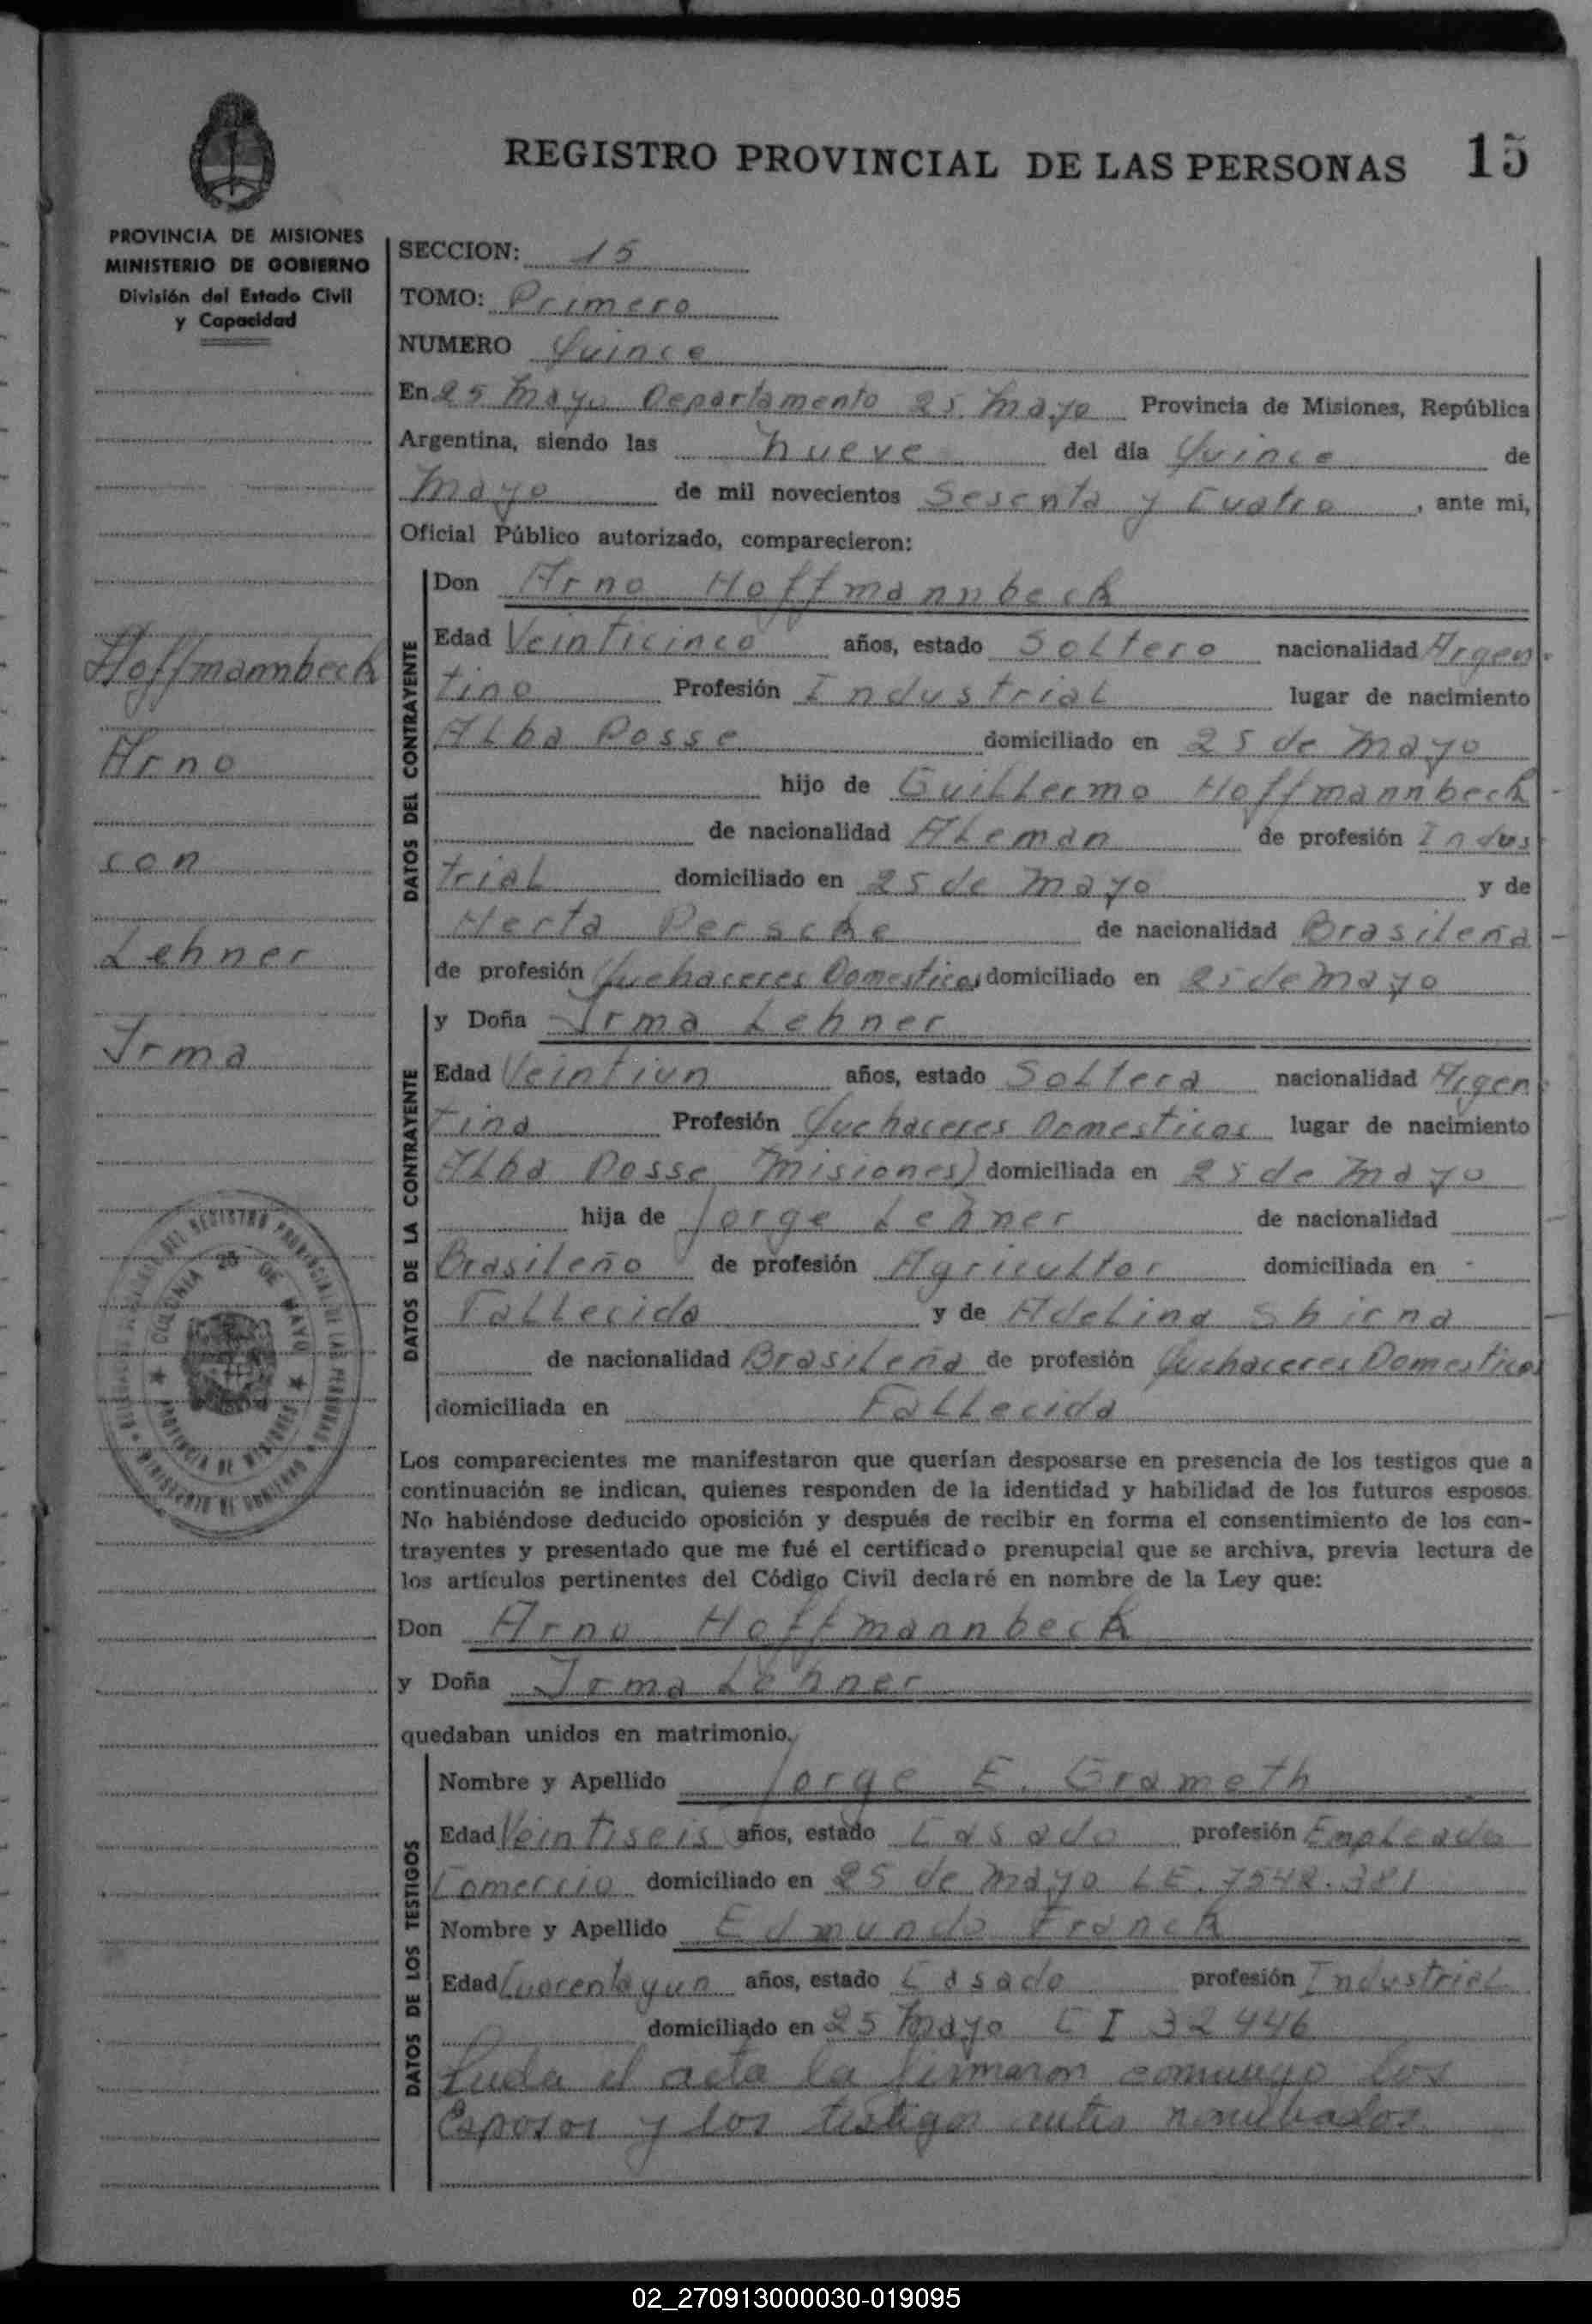 REGISTRO PROVINCIAL DE LAS PERSONAS 15
PROVINCIA DE MISIONES
MINISTERIO DE GOBIERNO
División del Estado Civil
y Capacidad
Hoffmannbeck
Arno
con
Lehner
Irma
COLONIA 25 DE MAYO
PROVINCIA DE MISIONES
SECCION: 15
TOMO: Primero
NUMERO Quince
En 25 Mayo Departamento 25 Mayo Provincia de Misiones, República
Argentina, siendo las nueve del día Quince de
Mayo de mil novecientos Sesenta y Cuatro, ante mi,
Oficial Público autorizado, comparecieron:
DATOS DEL CONTRAYENTE
Don Arno Hoffmannbeck
Edad Veinticinco años, estado Soltero nacionalidad Argen
tino Profesión Industrial lugar de nacimiento
Alba Posse domiciliado en 25 de Mayo
hijo de Guillermo Hoffmannbeck
de nacionalidad Aleman de profesión Indus
trial domiciliado en 25 de Mayo y de
Herta Perscke de nacionalidad Brasileña
de profesión Quehaceres Domesticos domiciliado en 25 de Mayo
DATOS DE LA CONTRAYENTE
y Doña Irma Lehner
Edad Veintiun años, estado Soltera nacionalidad Argen
tina Profesión Quehaceres Domesticos lugar de nacimiento
Alba Posse Misiones) domiciliada en 25 de Mayo
hija de Jorge Lehner de nacionalidad
Brasileño de profesión Agricultor domiciliada en -
Fallecido y de Adelina Shirna
de nacionalidad Brasileña de profesión Quehaceres Domesticos
domiciliada en Fallecida
Los comparecientes me manifestaron que querían desposarse en presencia de los testigos que a
continuación se indican, quienes responden de la identidad y habilidad de los futuros esposos.
No habiéndose deducido oposición y después de recibir en forma el consentimiento de los con-
trayentes y presentado que me fué el certificado prenupcial que se archiva, previa lectura de
los artículos pertinentes del Código Civil declaré en nombre de la Ley que:
Don Arno Hoffmannbeck
y Doña Irma Lehner
quedaban unidos en matrimonio.
DATOS DE LOS TESTIGOS
Nombre y Apellido Jorge E. Grameth
Edad Veintiseis años, estado Casado profesión Empleado
Comercio domiciliado en 25 de Mayo LE. 7548.381
Nombre y Apellido Edmundo Franck
Edad Cuarentayun años, estado Casado profesión Industrial
domiciliado en 25 Mayo C I 32446
Luda el acta la firmaron conmigo los
Esposos y los testigos antes nombrados.
02_270913000030-019095